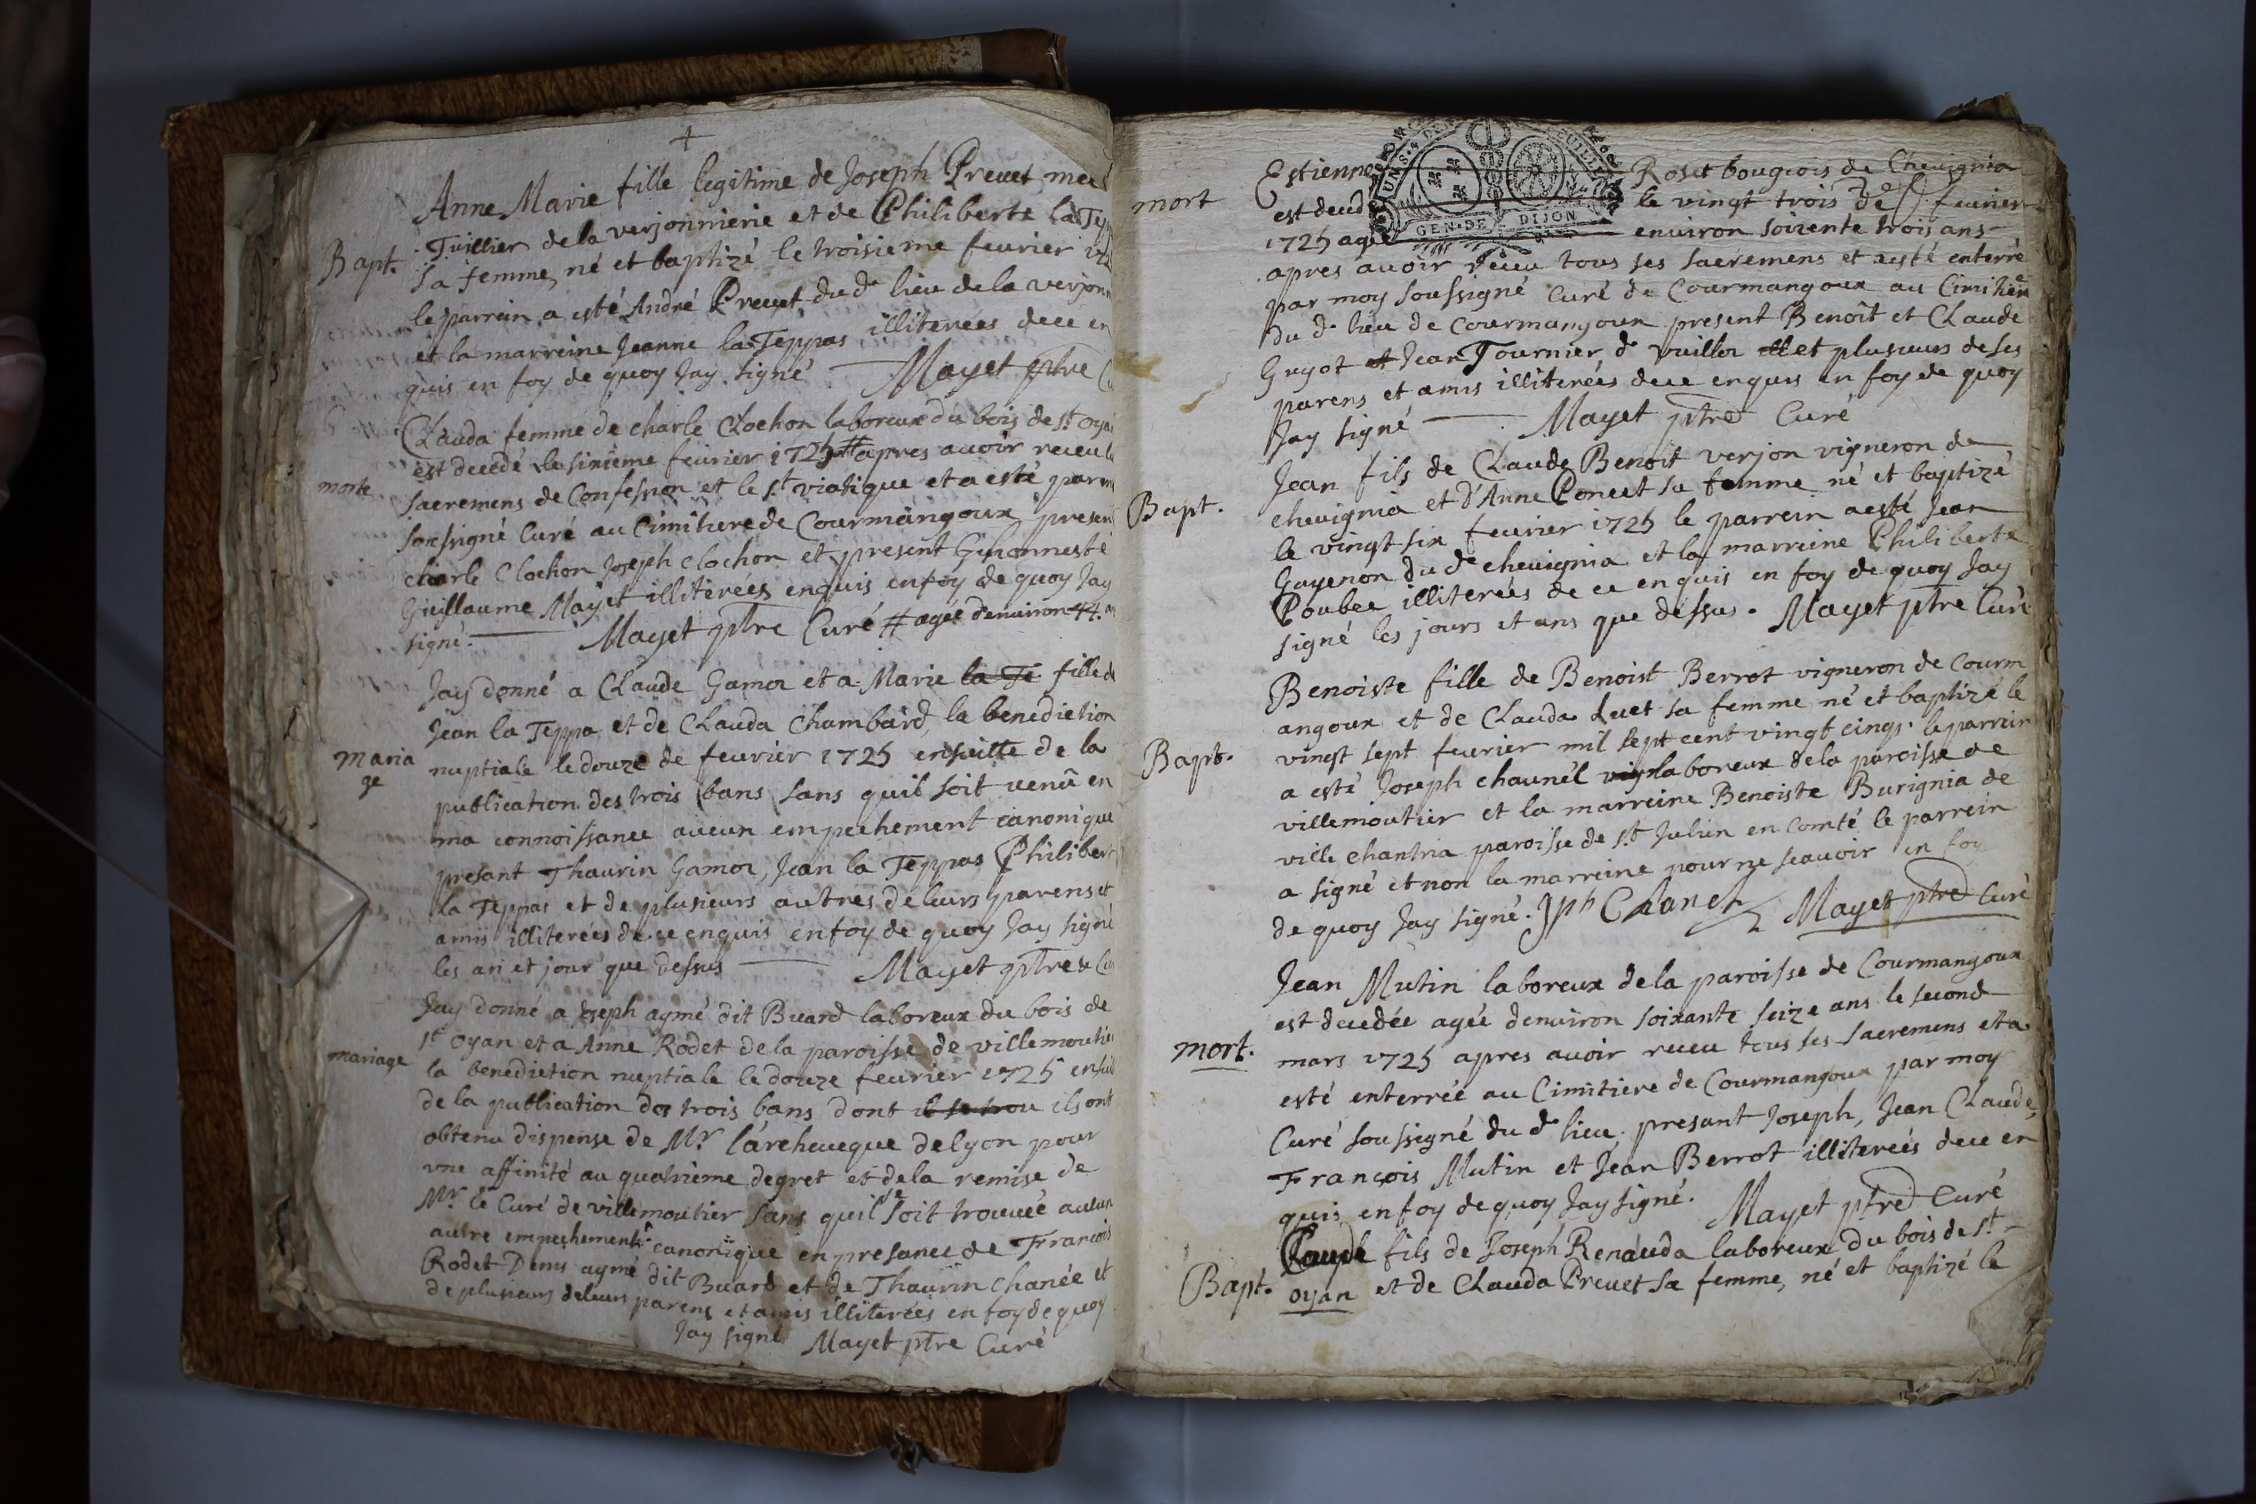 Anne Marie fille legitime de Joseph Prevet
Bapt. Tuillier de la verjonnierie et de Philiberte la
sa femme, né et baptizé le troisieme fevrier
le parrein a esté André Prevet du d. lieu de la
et la marreine Jeanne la Teppas illiterées de ce en
quis en foy de quoy Jay signé Mayet ptre
Clauda femme de charle Clochon laboreux du bois de St
est decedé le sixieme fevrier 1725 # apres avoir receu
morte sacremens de Confession et le St viatique et a esté par
soussigné Curé au Cimitiere de Courmangoux present
charle Clochon Joseph Clochon et present
Guillaume Mayet illiterées enquis en foy de quoy Jay
signé. Mayet ptre Curé # agée denviron 44.
Jay donné a Claude Gamoz et a Marie la Te fille de
Jean la Teppa et de Clauda Chambard, la benediction
maria
ge
nuptiale le douze de fevrier 1725 ensuitte de la
publication des trois bans sans quil soit venu en
ma connoissance aucun empechement canonique
present Thaurin Gamoz, Jean la Teppas Philibert
la Teppas et de plusieurs autres de leurs parens et
amis illiterées de ce enquis en foy de quoy Jay signé
les an et jour que dessus Mayet ptre
Jay donné a Joseph aymé dit Buard laboreux du bois de
St oyan et a Anne Rodet de la paroisse de villemoutier
mariage la benediction nuptiale le douze fevrier 1725
de la publication des trois bans dont il se trou ils ont
obtenu dispense de Mr l'archeveque de lyon pour
une affinité au quatrième degret et de la remise de
Mr le Curé de villemoutier sans quil se soit trouvée aucun
autre empechement canonique en presance de François
Rodet Denis aymé dit Buard et de Thaurin Chanée et
de plusieurs de leurs parens et amis illiterées en foy de quoy
Jay signé Mayet ptre Curé
GEN·DE DIJON
Estienne Roset bougeois de Chevignia
mort est deced le vingt trois de fevrier
1725 agé environ soixente trois ans
apres avoir receu tous ses sacremens et a esté enterré
par moy soussigné Curé de Courmangoux au Cimitiere
du d. lieu de Courmangoux present Benoît et Claude
Guyot et Jean Tournier et plusieurs de ses
parens et amis illiterées de ce enquis en foy de quoy
Jay signé Mayet ptre Curé
Jean fils de Claude Benoit verjon vigneron de
Bapt. chevignia et d'Anne Poncet sa femme né et baptizé
le vingt six fevrier 1725 le parrein a esté Jean
Guyenon du d. chevignia et la marreine Philiberte
Poubee illiterées de ce enquis en foy de quoy Jay
signé les jours et ans que dessus. Mayet ptre Curé
Benoiste fille de Benoist Berrot vigneron de Courm
angoux et de Clauda Luet sa femme né et baptizé le
Bapt. vingt sept fevrier mil sept cent vingt cinq. le parrein
a esté Joseph chaunél vig laboreux de la paroisse de
villemoutier et la marreine Benoiste Burignia de
ville chantria paroisse de St Julien en Comté le parrein
a signé et non la marreine pour ne scavoir en foy
de quoy Jay signé. Jph Chanel Mayet ptre Curé
Jean Mutin laboreux de la paroisse de Courmangoux
est decedée agée denviron soixante seize ans le second
mort. mars 1725 apres avoir receu tous ses sacremens et a
esté enterrée au Cimitiere de Courmangoux par moy
Curé soussigné du d. lieu, presant Joseph, Jean Claude,
François Mutin et Jean Berrot illiterées de ce en
quis en foy de quoy Jay signé. Mayet ptre Curé
Claude fils de Joseph Renauda laboreux du bois de St
Bapt. oyan et de Clauda Prevet sa femme, né et baptizé le